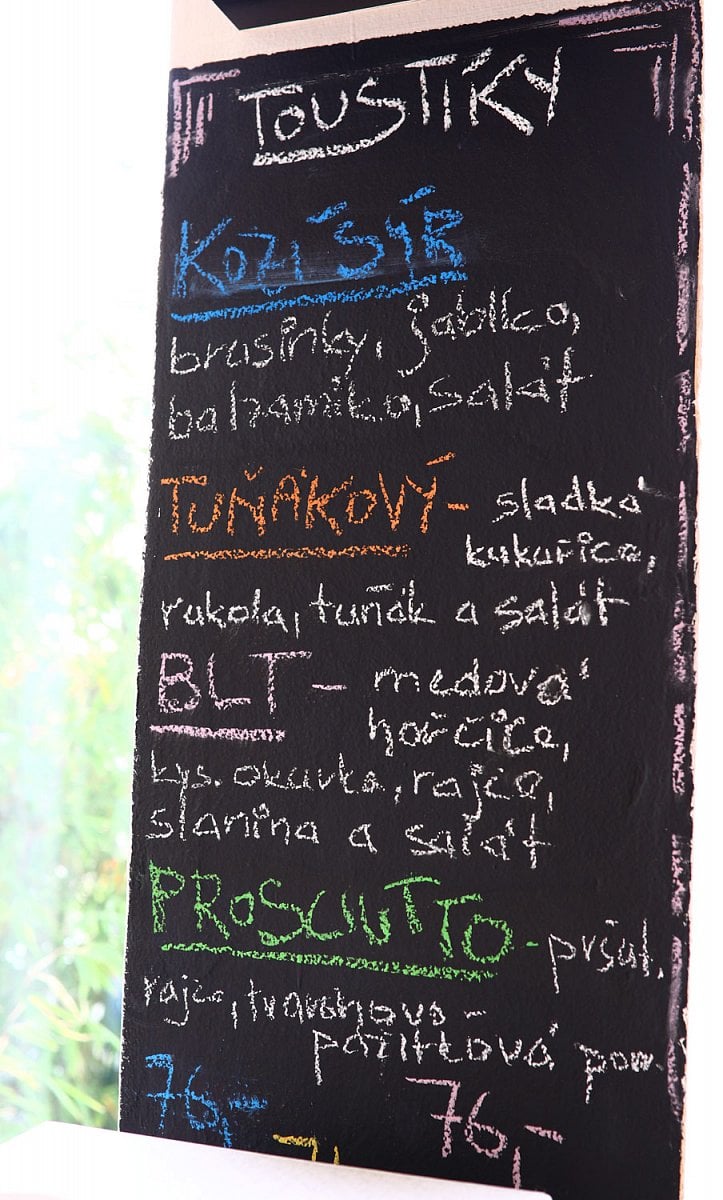 TOUSTÍKY
KOZÍ SÝR
brusinky, jablko,
balzamiko, salát
TUŇÁKOVÝ - sladká
kukuřice,
rukola, tuňák a salát
BLT - medová
hořčice,
kys. okurka, rajče,
slanina a salát
PROSCIUTTO - pršut,
rajče, tvarohovo -
pažitková pom.
76,- 76,-